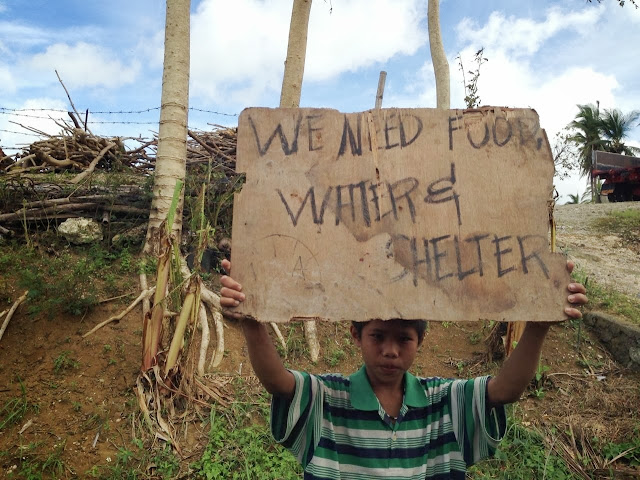 WE NEED FOOD,
WATER &
SHELTER